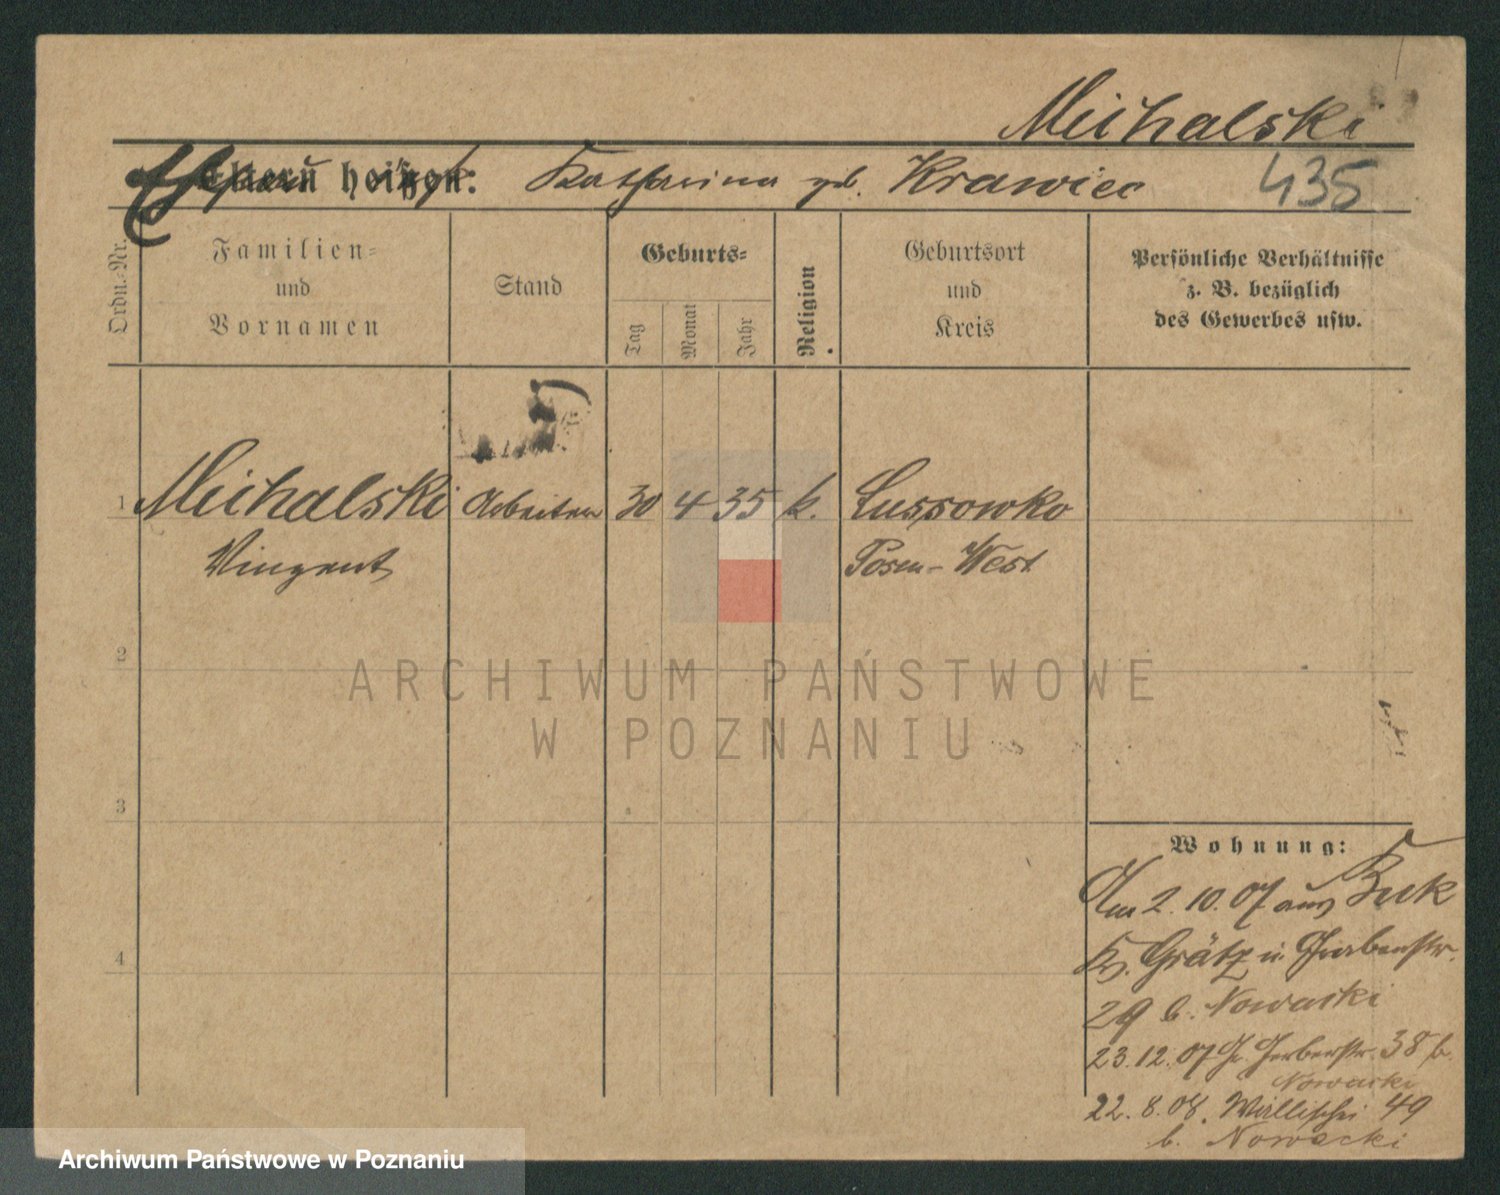 Michalski
Eltern heißen: Katharina geb. Krawiec 435
Ordn.=Nr.
Familien=
und
Vornamen
Stand
Geburts=
Tag
Monat
Jahr
Religion
Geburtsort
und
Kreis
Persönliche Verhältnisse
z. B. bezüglich
des Gewerbes usw.
1 Michalski Arbeiter 30 4 35 k. Lussowko
Vinzent Posen-West
2
ARCHIWUM PAŃSTWOWE
W POZNANIU
3
Wohnung:
Am 2. 10. 07 aus Buk
Kr. Grätz n. Grabenstr.
4
29 b. Nowacki
23. 12. 07 Gr. Gerberstr. 38 b.
Nowacki
22. 8. 08. Wallischei 49
b. Nowacki
Archiwum Państwowe w Poznaniu